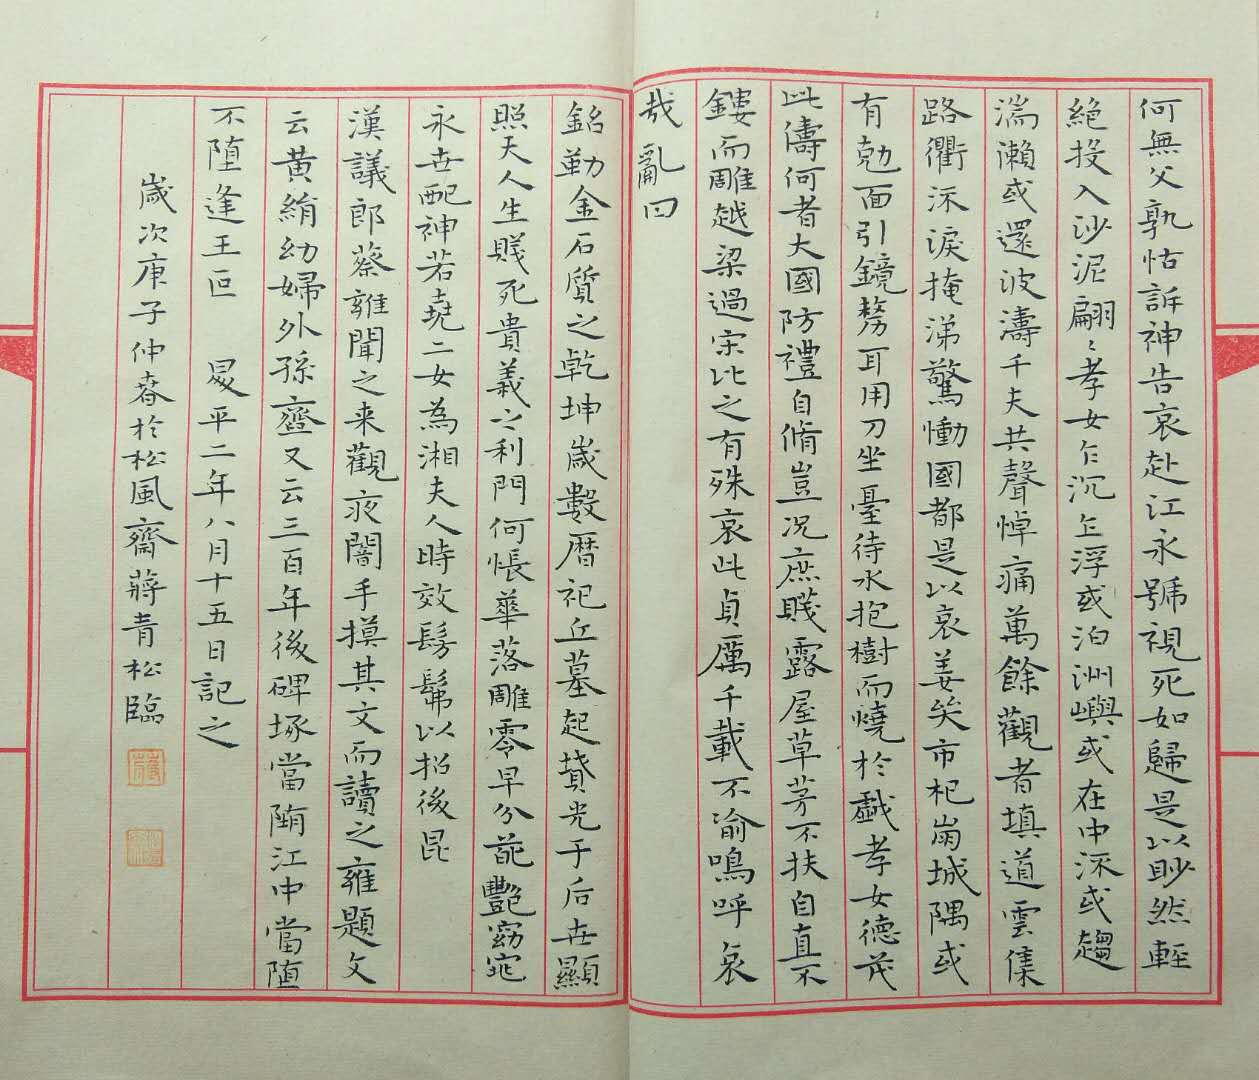 何無父孰怙訴神告哀赴江永號視死如歸是以眇然輕
絶投入沙泥翩〻孝女乍沉乍浮或泊洲嶼或在中流或趨
湍瀨或還波濤千夫共聲悼痛萬餘觀者填道雲集
路衢流淚掩涕驚慟國都是以哀姜哭市杞崩城隅或
有勊面引鏡剺耳用刀坐臺待水抱樹而燒於戲孝女德茂
此儔何者大國防禮自脩豈況庶賤露屋草茅不扶自直不
鏤而雕越梁過宋比之有殊哀此貞厲千載不渝嗚呼哀
哉亂曰
銘勒金石質之乾坤歲數曆祀丘墓起墳光于后世顯
照天人生賤死貴義之利門何悵華落雕零早分葩艷窈窕
永世配神若堯二女為湘夫人時效髣髴以招後昆
漢議郎蔡雍聞之来觀夜闇手摸其文而讀之雍題文
云黃絹幼婦外孫齏又云三百年後碑塚當墮江中當墮
不墮逢王叵 昇平二年八月十五日記之
歲次庚子仲春於松風齋蔣青松臨